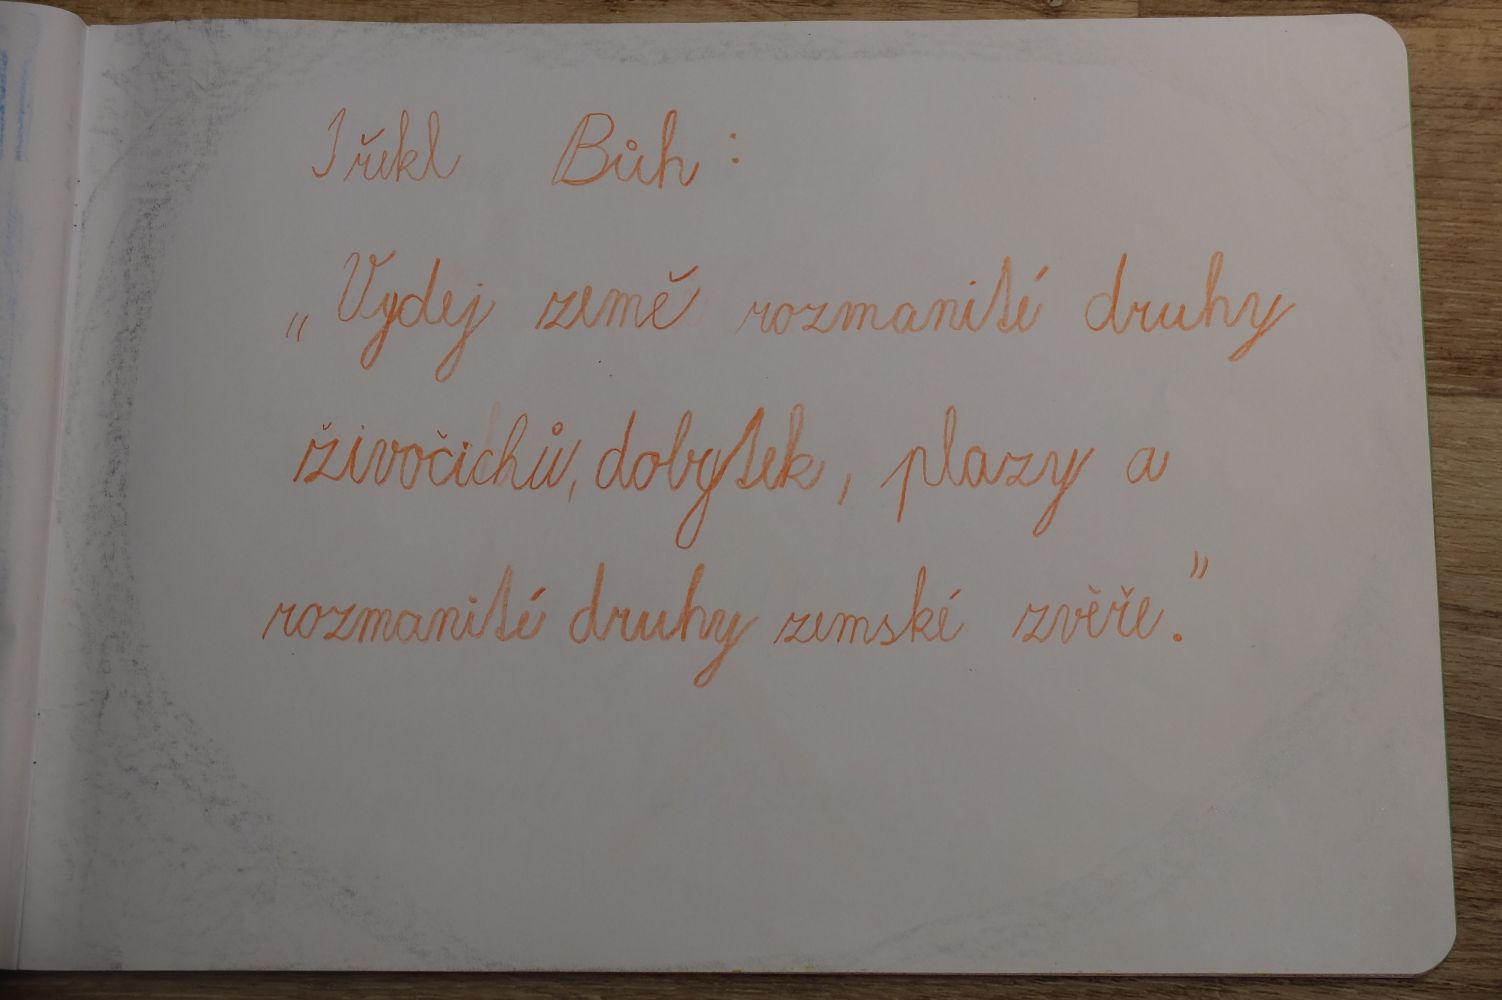 I řekl Bůh:
„Vydej země rozmanité druhy
živočichů, dobytek, plazy a
rozmanité druhy zemské zvěře.”